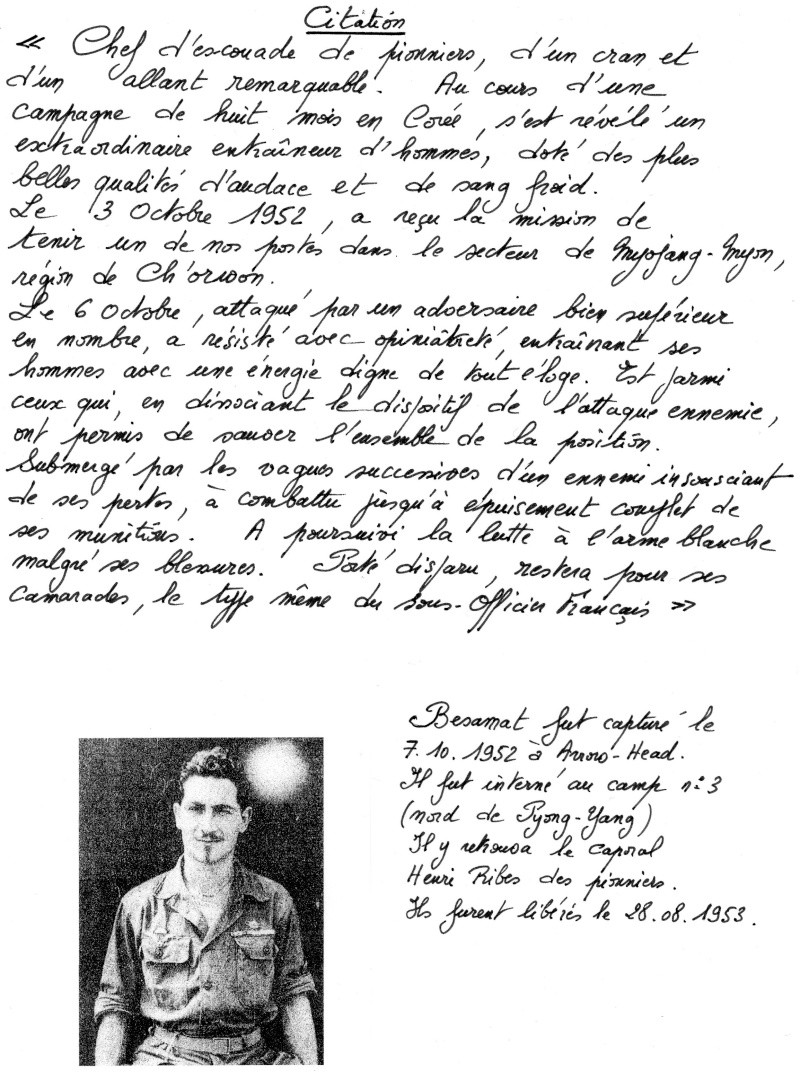 Citation
« Chef d'escouade de pionniers, d'un cran et
d'un allant remarquable. Au cours d'une
campagne de huit mois en Corée, s'est révélé un
extraordinaire entraîneur d'hommes, doté des plus
belles qualités d'audace et de sang froid.
Le 3 Octobre 1952, a reçu la mission de
tenir un de nos postes dans le secteur de Myojang-Myon,
région de Ch'orwon.
Le 6 Octobre, attaqué par un adversaire bien supérieur
en nombre, a résisté avec opiniâtreté, entraînant ses
hommes avec une énergie digne de tout éloge. Est parmi
ceux qui, en dissociant le dispositif de l'attaque ennemie,
ont permis de sauver l'ensemble de la position.
Submergé par les vagues successives d'un ennemi insousciant
de ses pertes, à combattu jusqu'à épuisement complet de
ses munitions. A poursuivi la lutte à l'arme blanche
malgré ses blessures. Porté disparu, restera pour ses
camarades, le type même du Sous-Officier Français »
Besamat fut capturé le
7.10.1952 à Arrow-Head.
Il fut interné au camp n:3
(nord de Pyong-Yang)
Il y retrouva le caporal
Henri Ribes des pionniers.
Ils furent libérés le 28.08.1953.